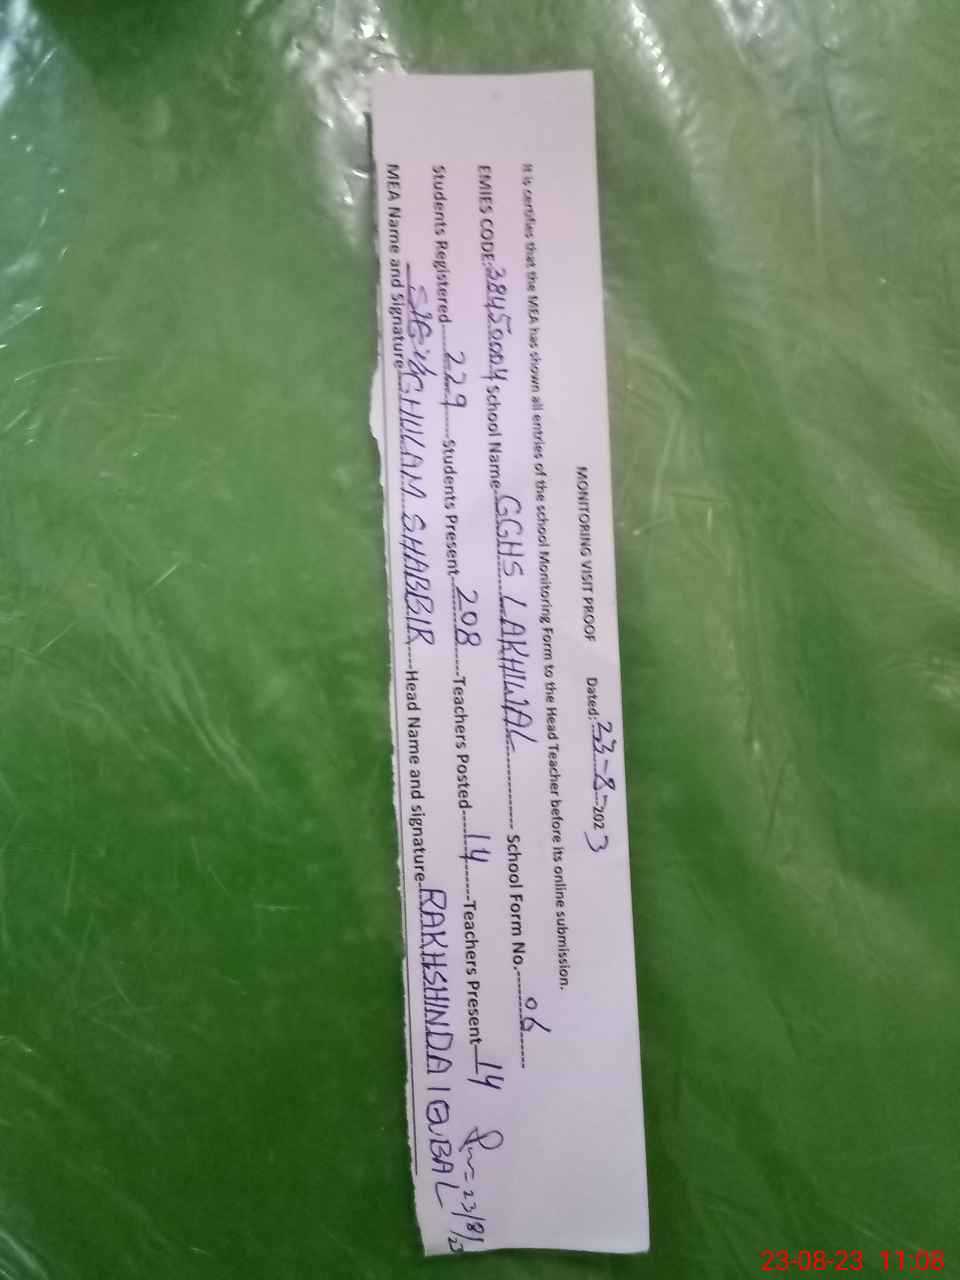 MONITORING VISIT PROOF Dated: 23-8-2023
It is certifies that the MEA has shown all entries of the school Monitoring Form to the Head Teacher before its online submission.
EMIES CODE: 38450004 school Name GGHS LAKHWAL School Form No. 06
Students Registered 229 Students Present 208 Teachers Posted 14 Teachers Present 14
MEA Name and Signature GHULAM SHABBIR Head Name and signature RAKHSHINDA IQBAL
23/8/23
23-08-23 11:08